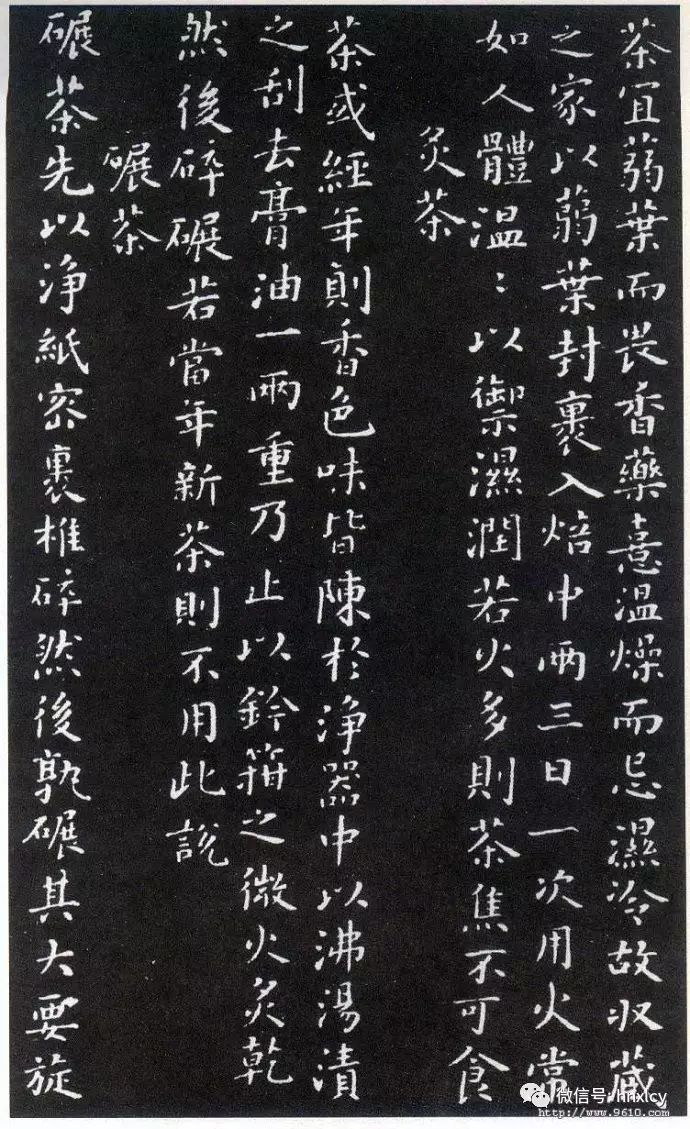 茶宜蒻葉而畏香藥憙温燥而忌濕冷故収蔵
之家以蒻葉封裹入焙中兩三日一次用火常
如人體温：以禦濕潤若火多則茶焦不可食
炙茶
茶或經年則香色味皆陳於浄器中以沸湯漬
之刮去膏油一兩重乃止以鈐箝之微火炙乾
然後碎碾若當年新茶則不用此説
碾茶
碾茶先以浄紙密裹椎碎然後孰碾其大要旋
微信号: hnxlcy
http://www.9610.com